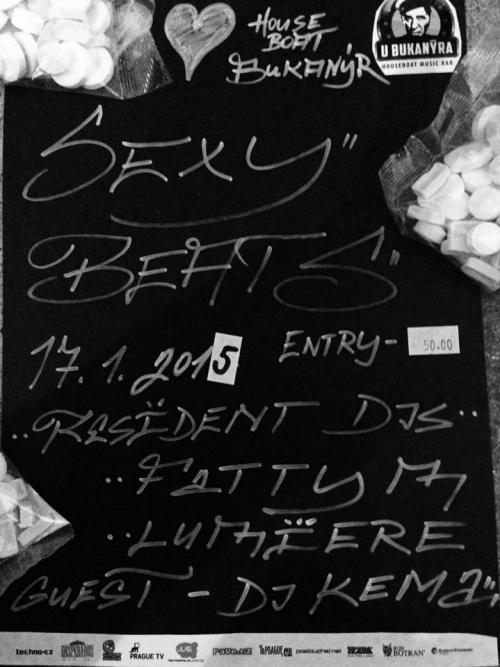 HOUSE
BOAT
BUKANÝR
U BUKANÝRA
HOUSEBOAT MUSIC BAR
SEXY"
BEATS"
17. 1. 2015
ENTRY- 50.00
..RESIDENT DJS..
..FATTY M
..LUMIERE
GUEST - DJ KEMA"
techno.cz
PRAGUE TV